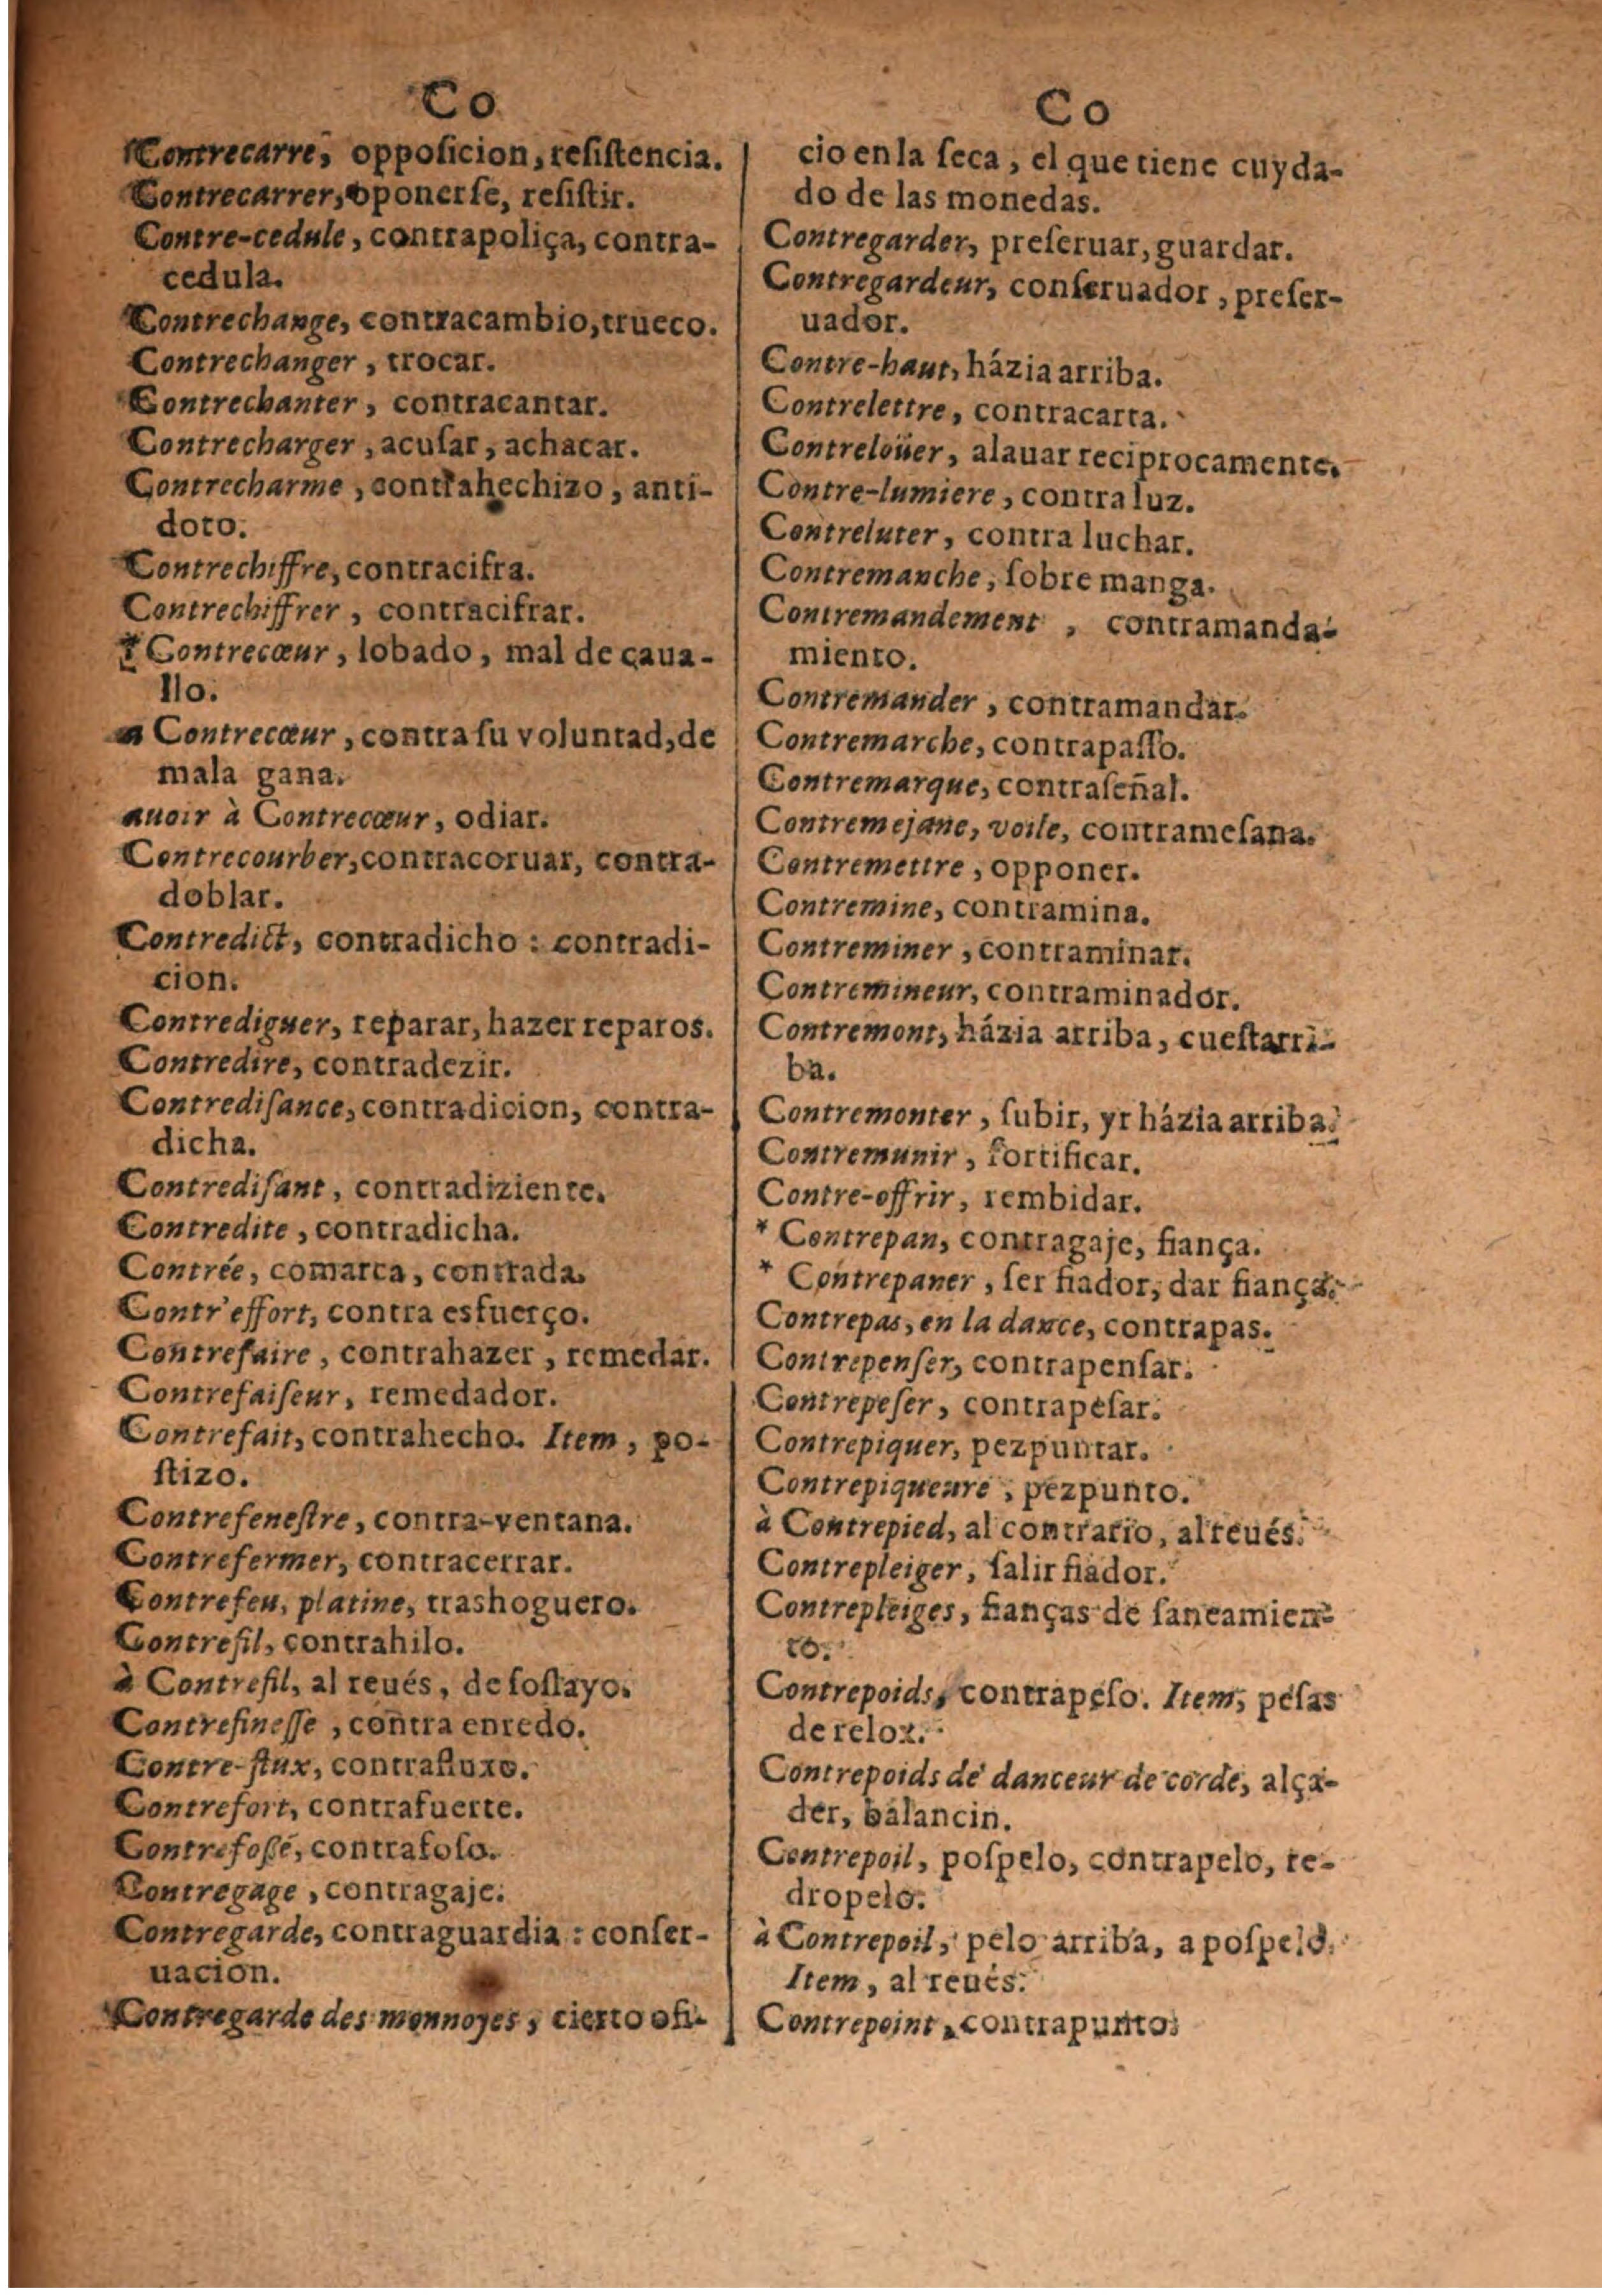 Co
Contrecarre, oppoſicion, reſiſtencia.
Contrecarrer, oponerſe, reſiſtir.
Contre-cedule, contrapoliça, contra-
cedula.
Contrechange, contracambio, trueco.
Contrechanger, trocar.
Contrechanter, contracantar.
Contrecharger, acuſar, achacar.
Contrecharme, contrahechizo, anti-
doto.
Contrechiffre, contracifra.
Contrechiffrer, contracifrar.
† Contrecœur, lobado, mal de caua-
llo.
a Contrecœur, contra ſu voluntad, de
mala gana.
auoir à Contrecœur, odiar.
Contrecourber, contracoruar, contra-
doblar.
Contredict, contradicho : contradi-
cion.
Contrediguer, reparar, hazer reparos.
Contredire, contradezir.
Contrediſance, contradicion, contra-
dicha.
Contrediſant, contradiziente.
Contredite, contradicha.
Contrée, comarca, contrada.
Contr'effort, contra esfuerço.
Contrefaire, contrahazer, remedar.
Contrefaiſeur, remedador.
Contrefait, contrahecho. Item, po-
ſtizo.
Contrefeneſtre, contra-ventana.
Contrefermer, contracerrar.
Contrefeu, platine, trashoguero.
Contrefil, contrahilo.
à Contrefil, al reués, de foſlayo.
Contrefineſſe, contra enredo.
Contre-flux, contrafluxo.
Contrefort, contrafuerte.
Contrefoſſé, contrafoſo.
Contregage, contragaje.
Contregarde, contraguardia : conſer-
uacion.
Contregarde des monnoyes, cierto ofi-
Co
cio en la ſeca, el que tiene cuyda-
do de las monedas.
Contregarder, preſeruar, guardar.
Contregardeur, conſeruador, preſer-
uador.
Contre-haut, házia arriba.
Contrelettre, contracarta.
Contreloüer, alauar reciprocamente.
Contre-lumiere, contra luz.
Contreluter, contra luchar.
Contremanche, ſobre manga.
Contremandement, contramanda-
miento.
Contremander, contramandar.
Contremarche, contrapaſſo.
Contremarque, contraſeñal.
Contremejane, voile, contrameſana.
Contremettre, opponer.
Contremine, contramina.
Contreminer, contraminar.
Contremineur, contraminador.
Contremont, házia arriba, cueſtarri-
ba.
Contremonter, ſubir, yr házia arriba.
Contremunir, fortificar.
Contre-offrir, rembidar.
* Contrepan, contragaje, fiança.
* Contrepaner, ſer fiador, dar fiança.
Contrepas, en la dance, contrapas.
Contrepenſer, contrapenſar.
Contrepeſer, contrapeſar.
Contrepiquer, pezpuntar.
Contrepiqueure, pezpunto.
à Contrepied, al contrario, al reués.
Contrepleiger, ſalir fiador.
Contrepleiges, fianças de ſaneamien-
to.
Contrepoids, contrapeſo. Item, peſas
de relox.
Contrepoids de danceur de corde, alça-
der, balancin.
Contrepoil, poſpelo, contrapelo, re-
dropelo.
à Contrepoil, pelo arriba, a poſpelo.
Item, al reués.
Contrepoint, contrapunto.